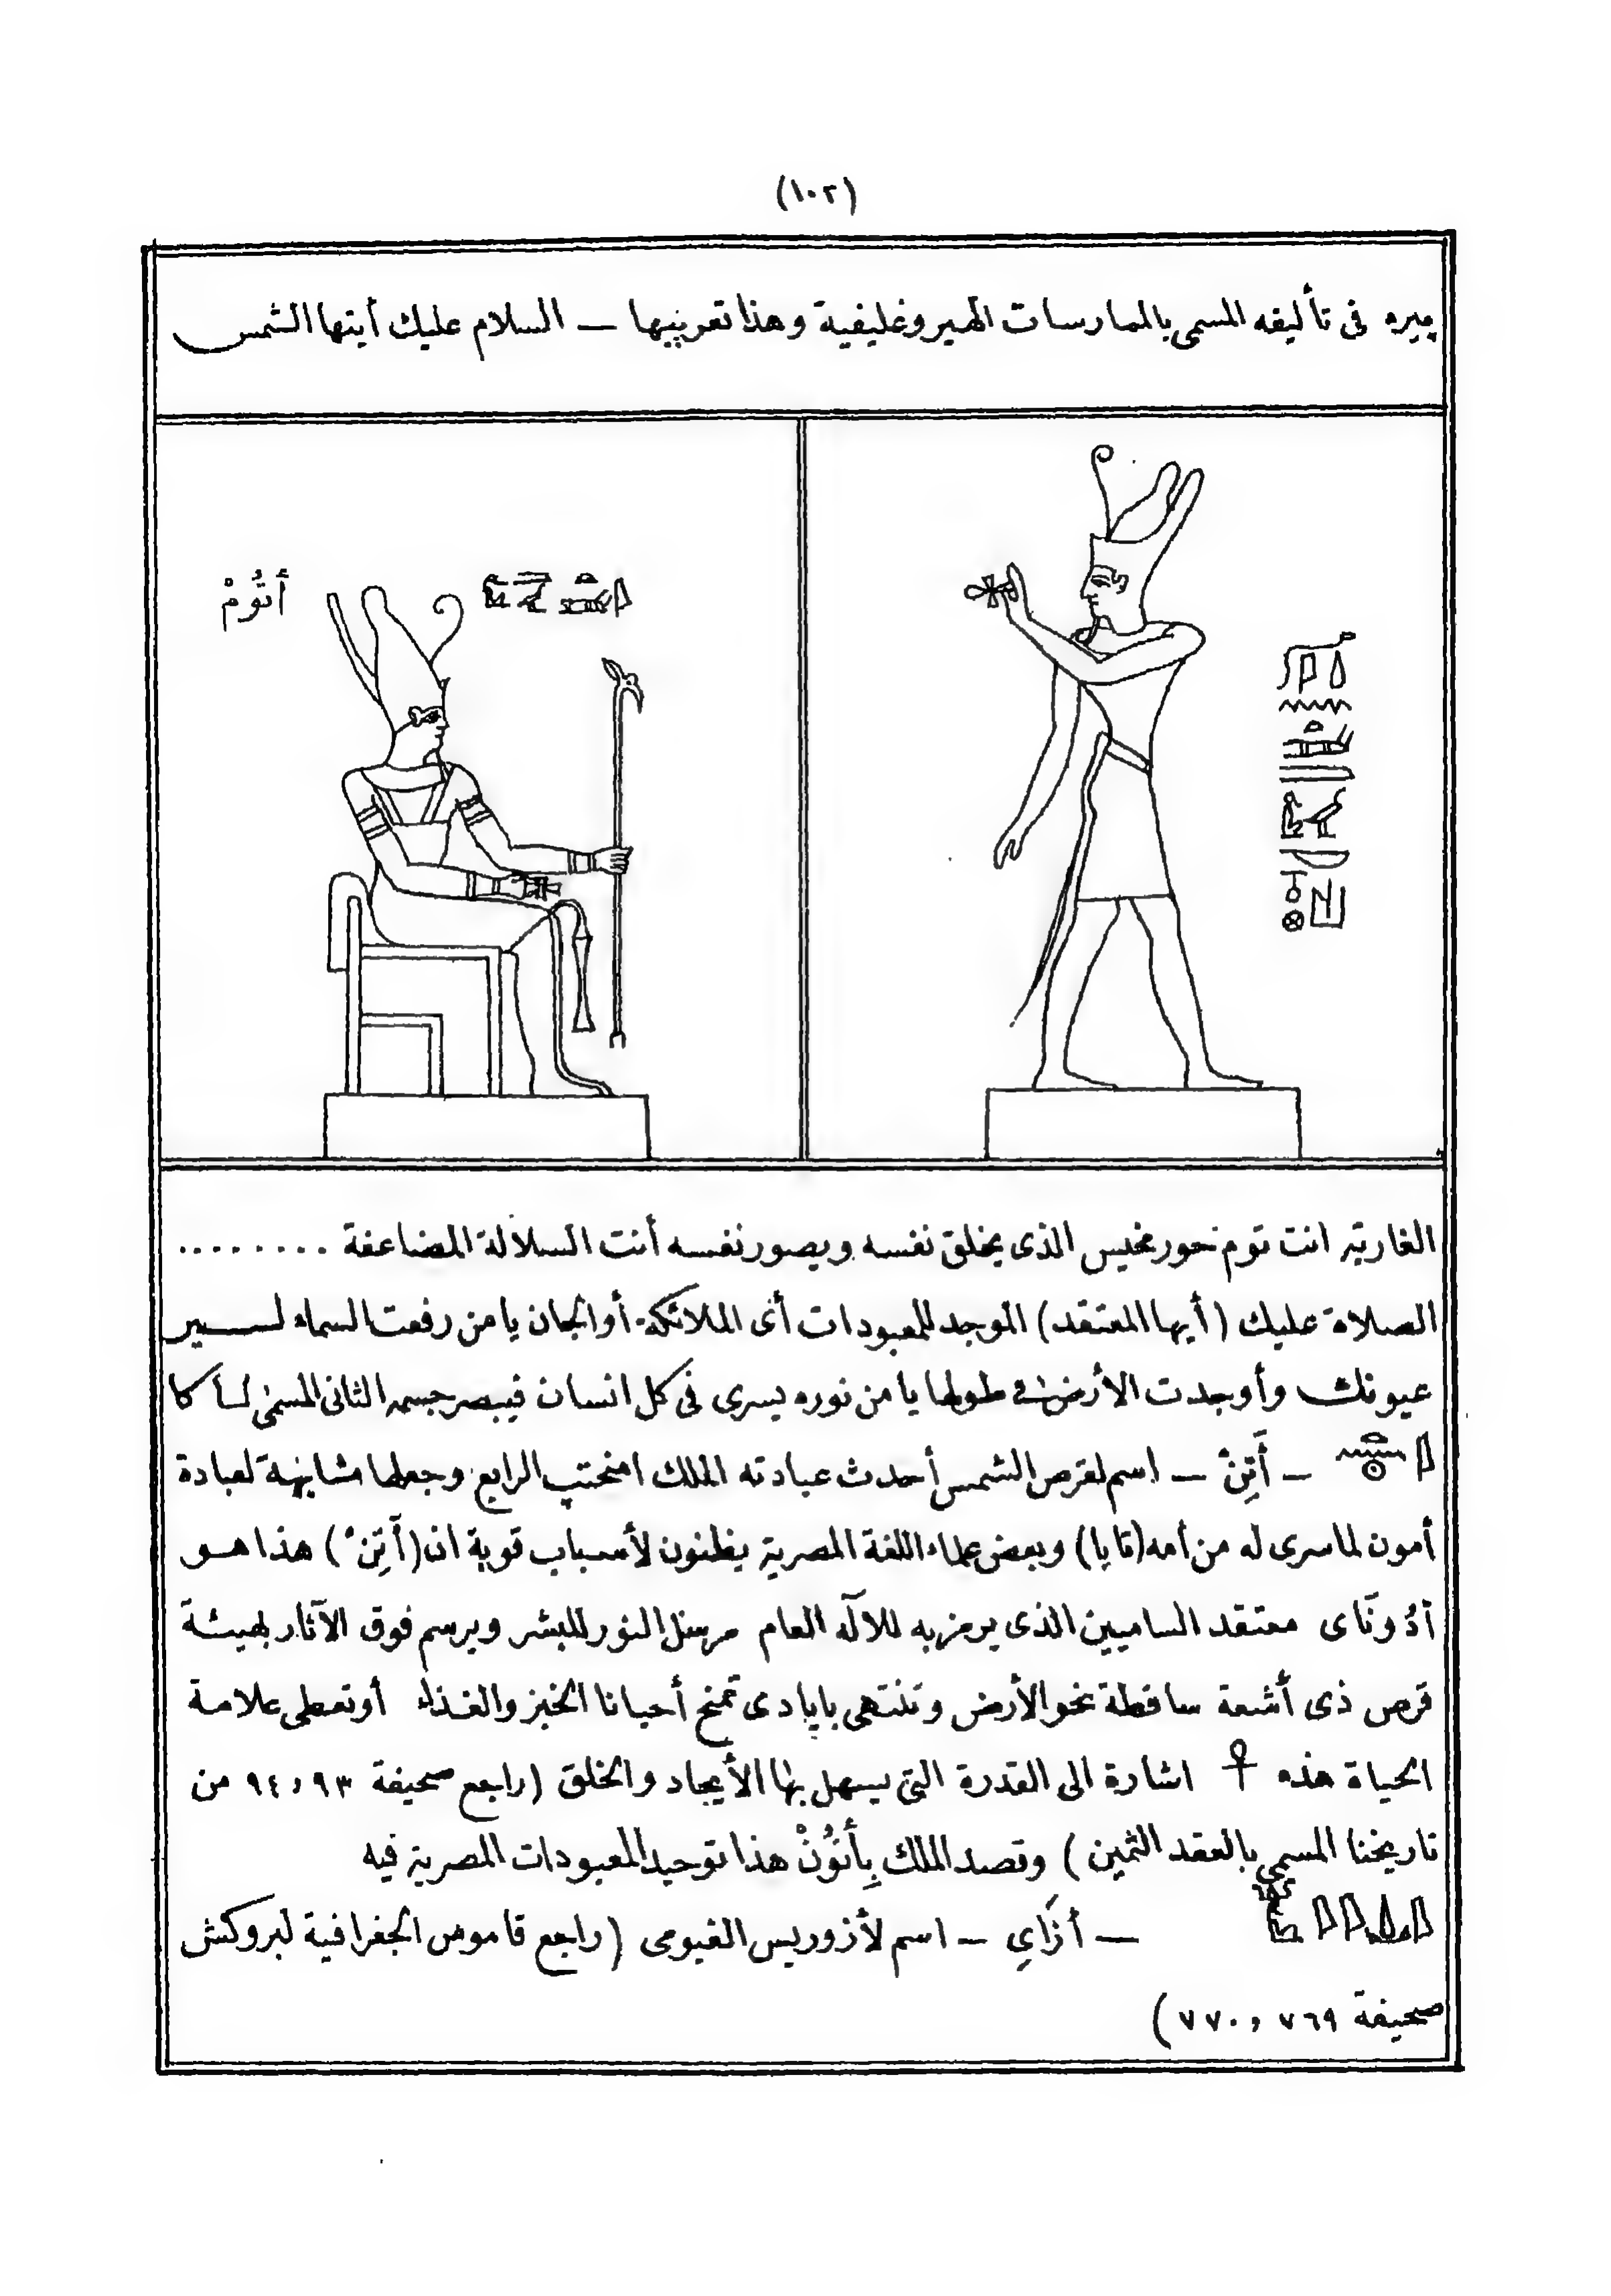 (١٠٢)
پيره فى تأليفه المسمى بالممارسات الهيروغليفية وهذا تعريبها — السلام عليك أيتها الشمس
أتُومْ
الغاربة انت توم حور مخيس الذى يخلق نفسه ويصور نفسه أنت السلالة المضاعفة ........
الصلاة عليك (أيها المعتقد) الموجد للمعبودات أى الملائكة أو الجان يا من رفعت السماء لسير
عيونك وأوجدت الأرض فى طولها يا من نوره يسرى فى كل انسان فيبصر جسمه الثانى المسمى كا
— أَتِنْ — اسم لقرص الشمس أحدث عبادته الملك امنحتپ الرابع وجعلها مشابهة لعبادة
أمون لما سرى له من أمه (تايا) وبعض علماء اللغة المصرية يظنون لأسباب قوية ان (أَتِنْ) هذا هو
أدُونَاى معتقد الساميين الذى يرمز به للاله العام مرسل النور للبشر ويرسم فوق الآثار بهيئة
قرص ذى أشعة ساقطة نحو الأرض وتنتهى بايادى تمنح أحيانا الخبز والغذاء أو تعطى علامة
الحياة هذه ☥ اشارة الى القدرة التى يسهل بها الأيجاد والخلق (راجع صحيفة ٩٣ و ٩٤ من
تاريخنا المسمى بالعقد الثمين) وقصد الملك بِأَتُونْ هذا توحيد المعبودات المصرية فيه
— أزَاي — اسم لأزوريس الفيومى (راجع قاموس الجغرافية لبروكش
صحيفة ٧٦٩ و ٧٧٠)